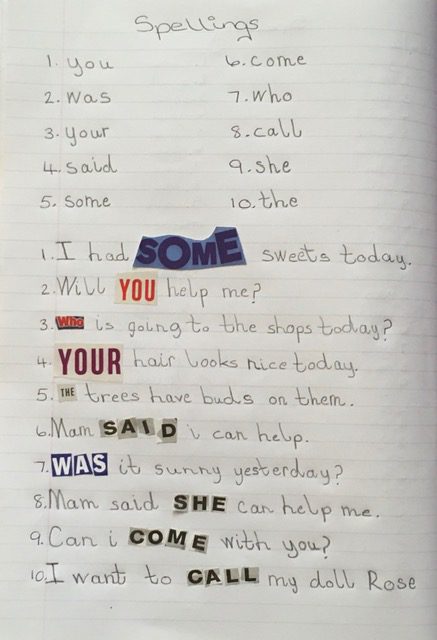 Spellings
1. you 6. come
2. was 7. who
3. your 8. call
4. said 9. she
5. some 10. the
1. I had SOME sweets today.
2. Will YOU help me?
3. Who is going to the shops today?
4. YOUR hair looks nice today.
5. THE trees have buds on them.
6. Mam SAID i can help.
7. WAS it sunny yesterday?
8. Mam said SHE can help me.
9. Can i COME with you?
10. I want to CALL my doll Rose